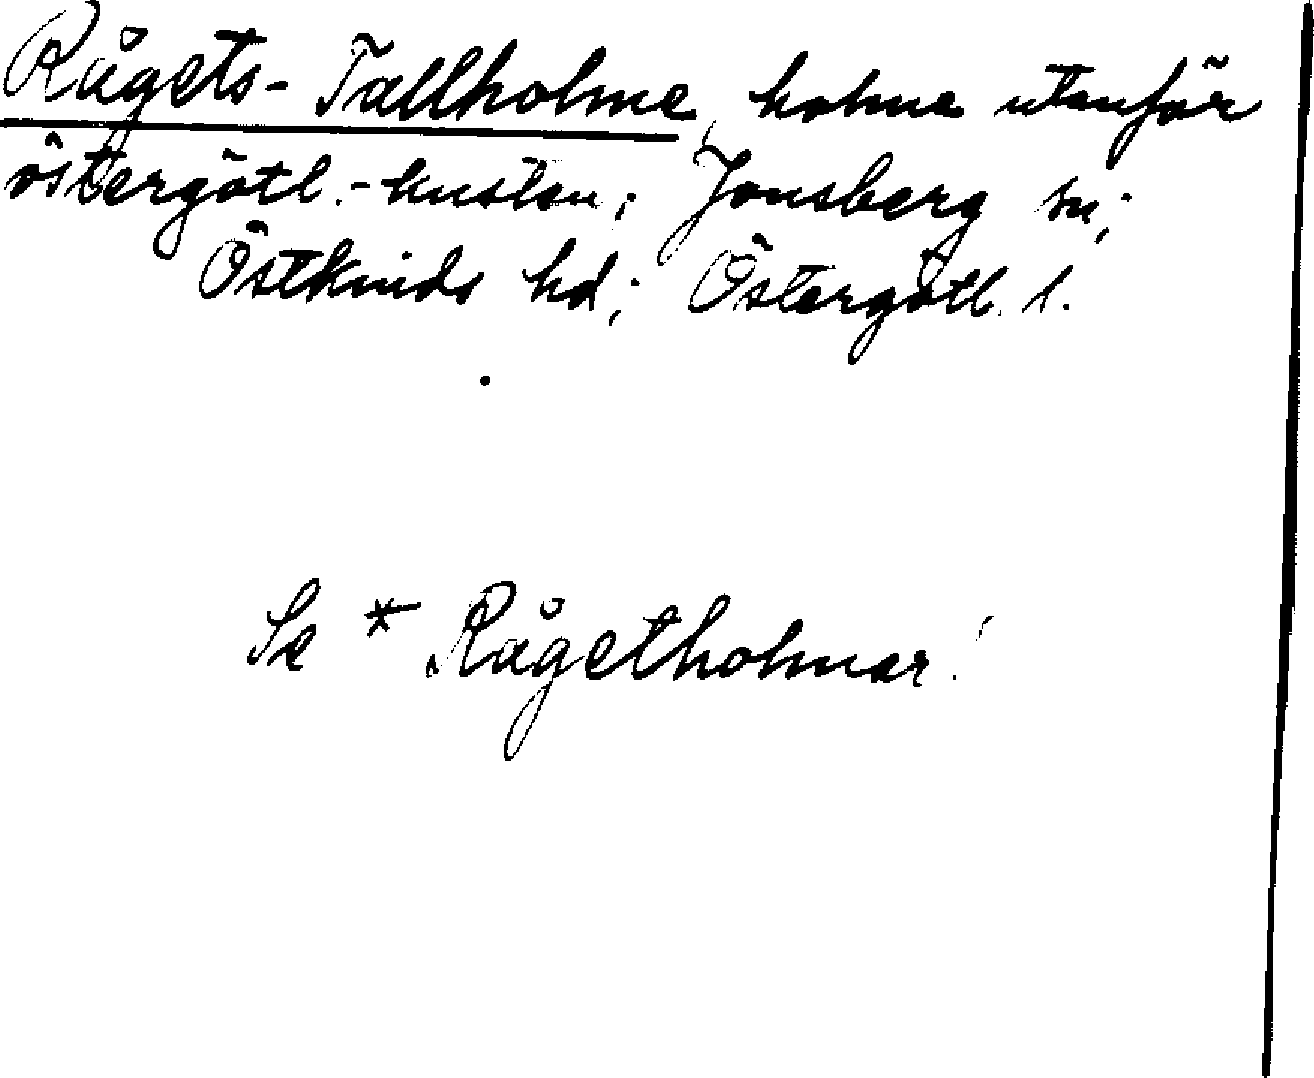 Rågets-Tallholme, holme utanför
östergötl.-kusten; Jonsberg sn;
Östkinds hd; Östergötl. l.
Se * Rågetholmar!